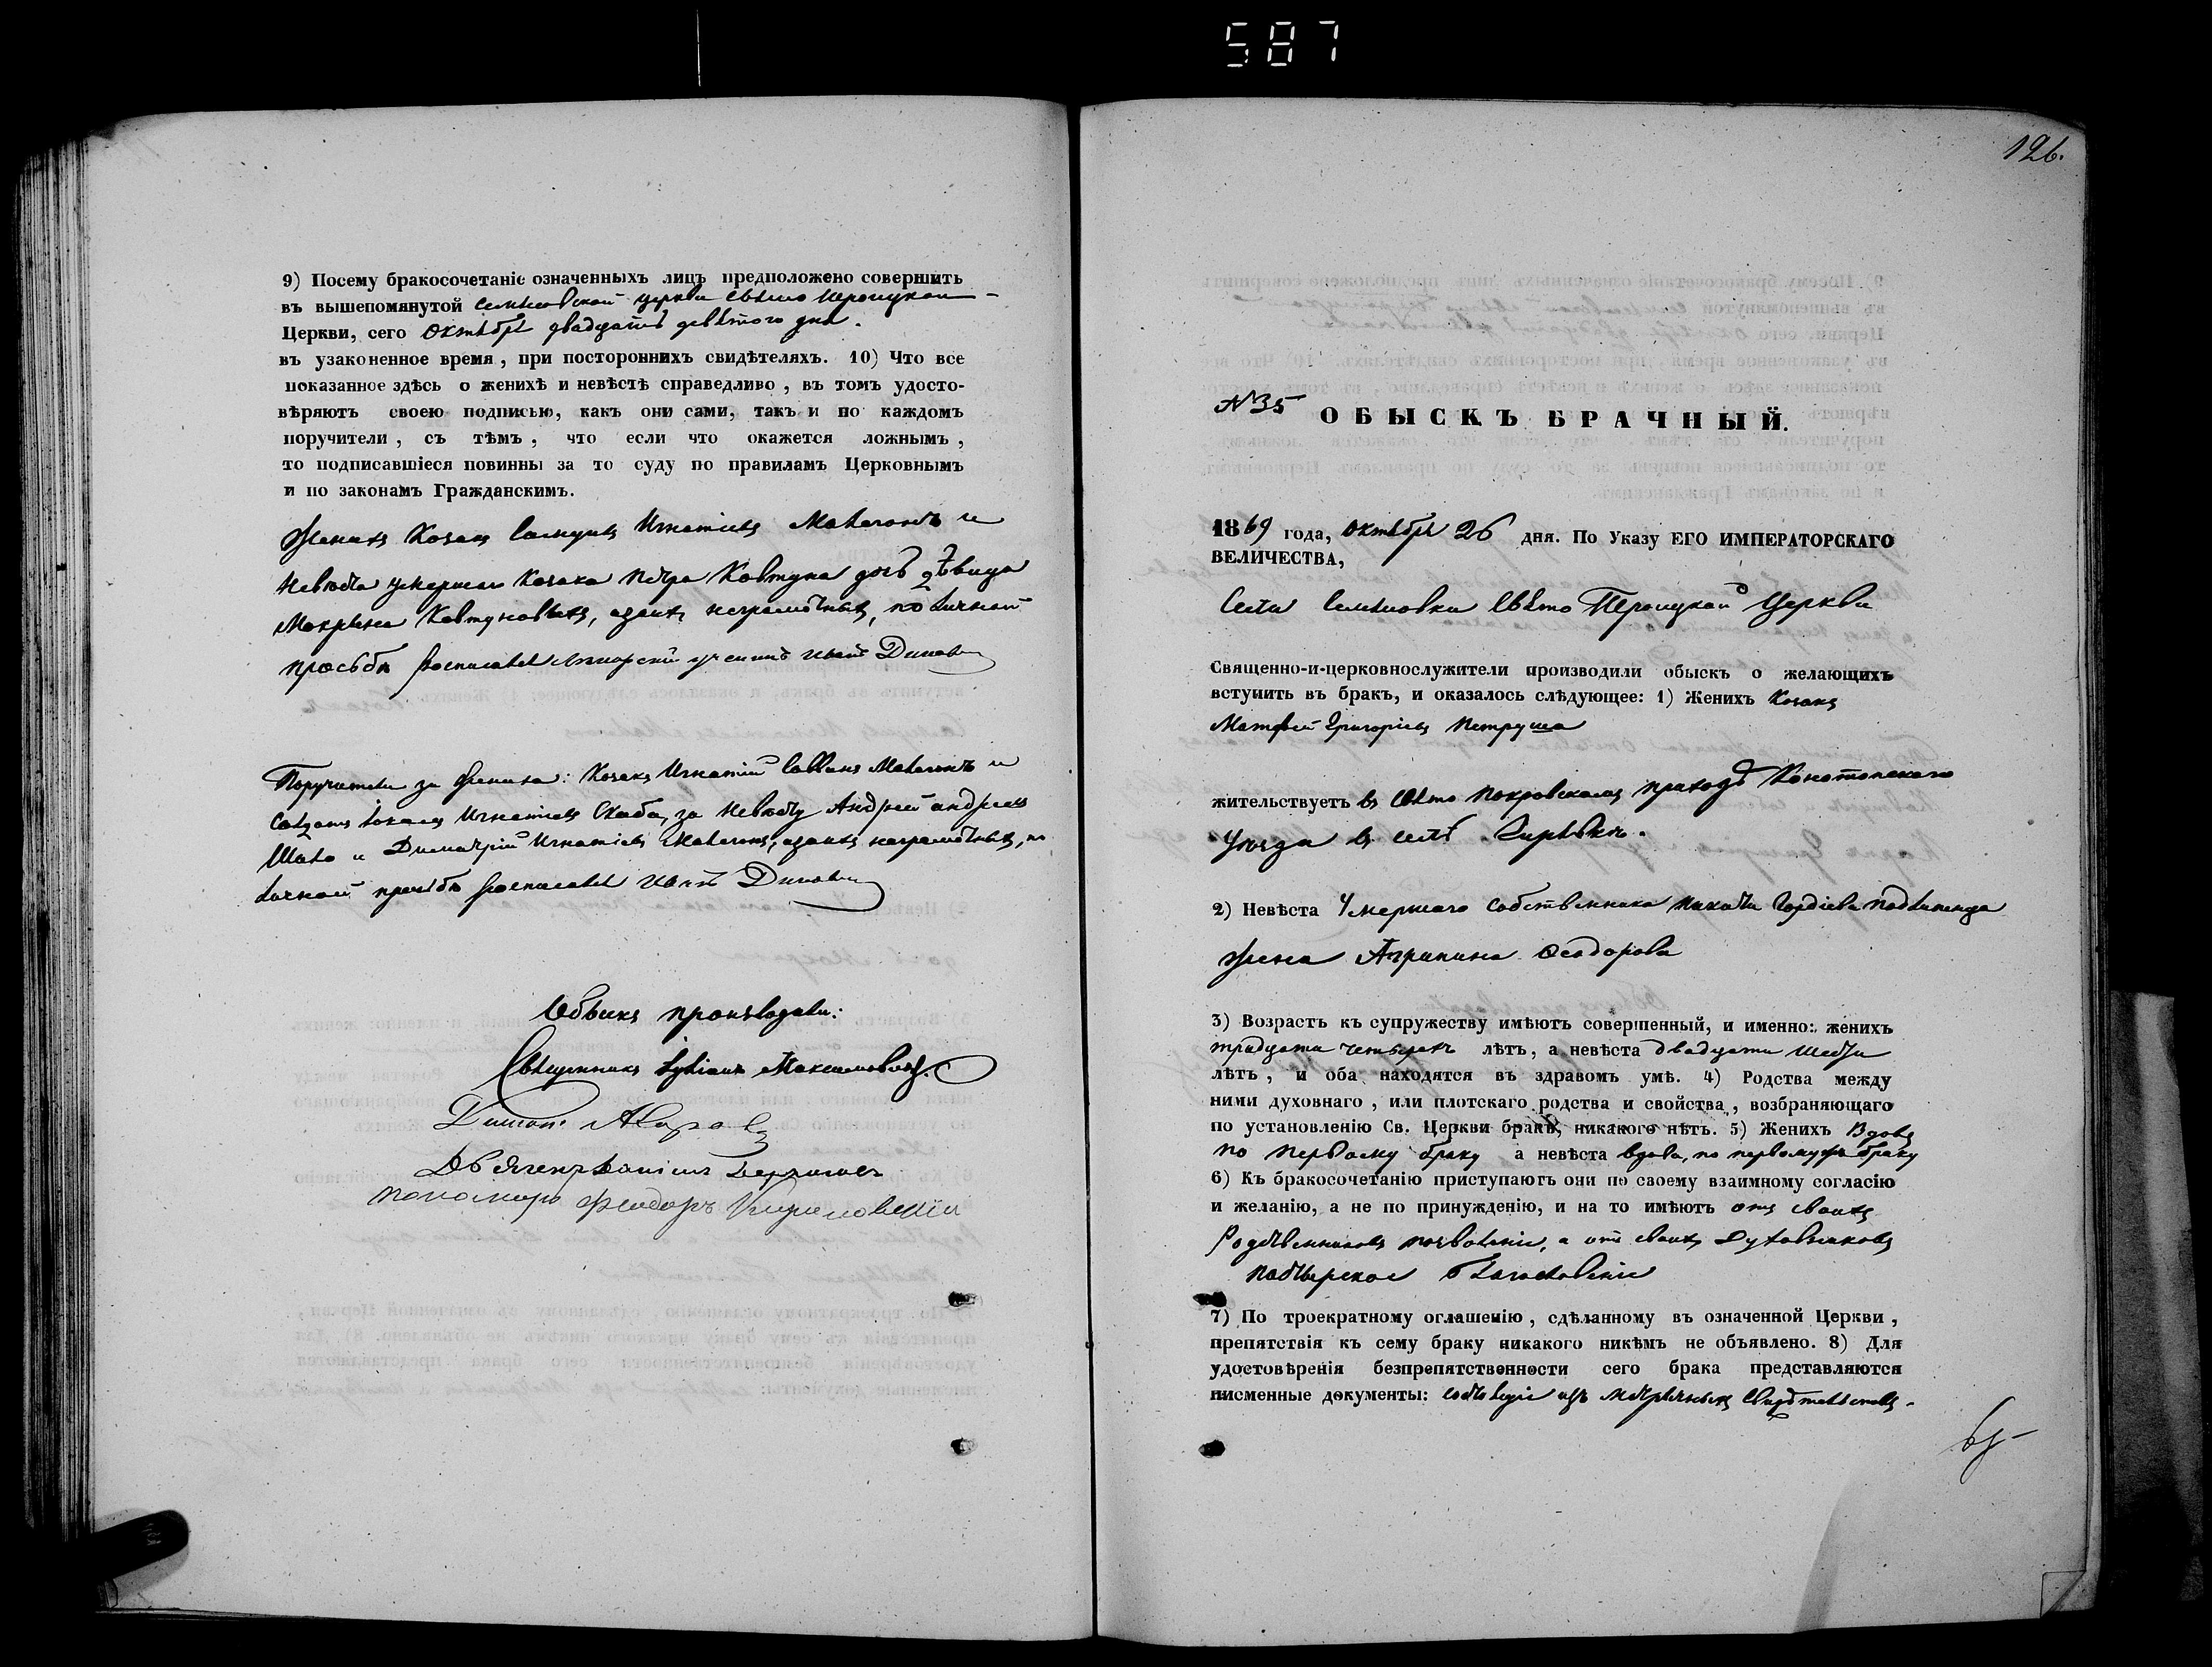 587
9) Посему бракосочетаніе означенныхъ лицъ предположено совершить
въ вышепомянутой Семяновской церкви Свято Троицкой
Церкви, сего Октября двадцать девятого дня.
въ узаконенное время, при постороннихъ свидѣтеляхъ. 10) Что все
показанное здѣсь о женихѣ и невѣстѣ справедливо, въ томъ удосто-
вѣряютъ своею подписью, какъ они сами, такъ и по каждомъ
поручители, съ тѣмъ, что если что окажется ложнымъ,
то подписавшіеся повинны за то суду по правиламъ Церковнымъ
и по законамъ Гражданскимъ.
Женихъ Козакъ Игнатіевъ и
Невѣста умершаго Козака Петра Ковтуна дочь дѣвица
Ковтуновна, неграмотныхъ, по личной
просьбѣ росписался
Поручители за жениха: Козакъ Игнатій и
Игнатіевъ за невѣсту Андрей Андреевъ
и Димитрій Игнатіевъ неграмотныхъ, по
личной просьбѣ росписался
Обыскъ производили:
Священникъ Максимовичъ.
Пономарь Феодоръ
126.
№35 ОБЫСКЪ БРАЧНЫЙ.
1869 года, Октября 26 дня. По Указу ЕГО ИМПЕРАТОРСКАГО
ВЕЛИЧЕСТВА,
Села Семяновки Свято Троицкой Церкви
Священно-и-церковнослужители производили обыскъ о желающихъ
вступить въ бракъ, и оказалось слѣдующее: 1) Женихъ Козакъ
Матфей Григоріевъ Петруша
жительствуетъ въ Свято Покровскомъ приходѣ Конотопскаго
уѣзда въ селѣ Гирявкѣ.
2) Невѣста Умершаго собственника Гордіева
жена Агрипина Феодорова
3) Возрастъ къ супружеству имѣютъ совершенный, и именно: женихъ
тридцати четырехъ лѣтъ, а невѣста двадцати шести
лѣтъ, и оба находятся въ здравомъ умѣ. 4) Родства между
ними духовнаго, или плотскаго родства и свойства, возбраняющаго
по установленію Св. Церкви бракъ, никакого нѣтъ. 5) Женихъ Вдовъ
по первому браку а невѣста вдова, по первому браку
6) Къ бракосочетанію приступаютъ они по своему взаимному согласію
и желанію, а не по принужденію, и на то имѣютъ отъ своихъ
Родственниковъ позволеніе, а отъ своихъ Духовниковъ
пастырское благословеніе
7) По троекратному оглашенію, сдѣланному въ означенной Церкви,
препятствія къ сему браку никакого никѣмъ не объявлено. 8) Для
удостовѣренія безпрепятственности сего брака представляются
писменные документы: изъ метричныхъ свидѣтельствъ.